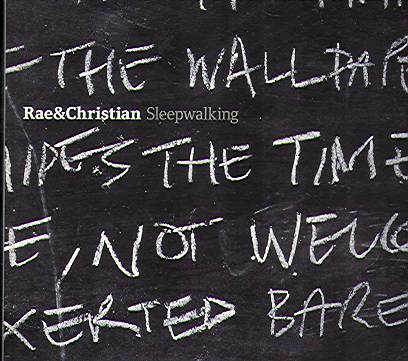 E THE WALLPAPE
Rae&Christian Sleepwalking
IPES THE TIME
E, NOT WELCO
XERTED BARE